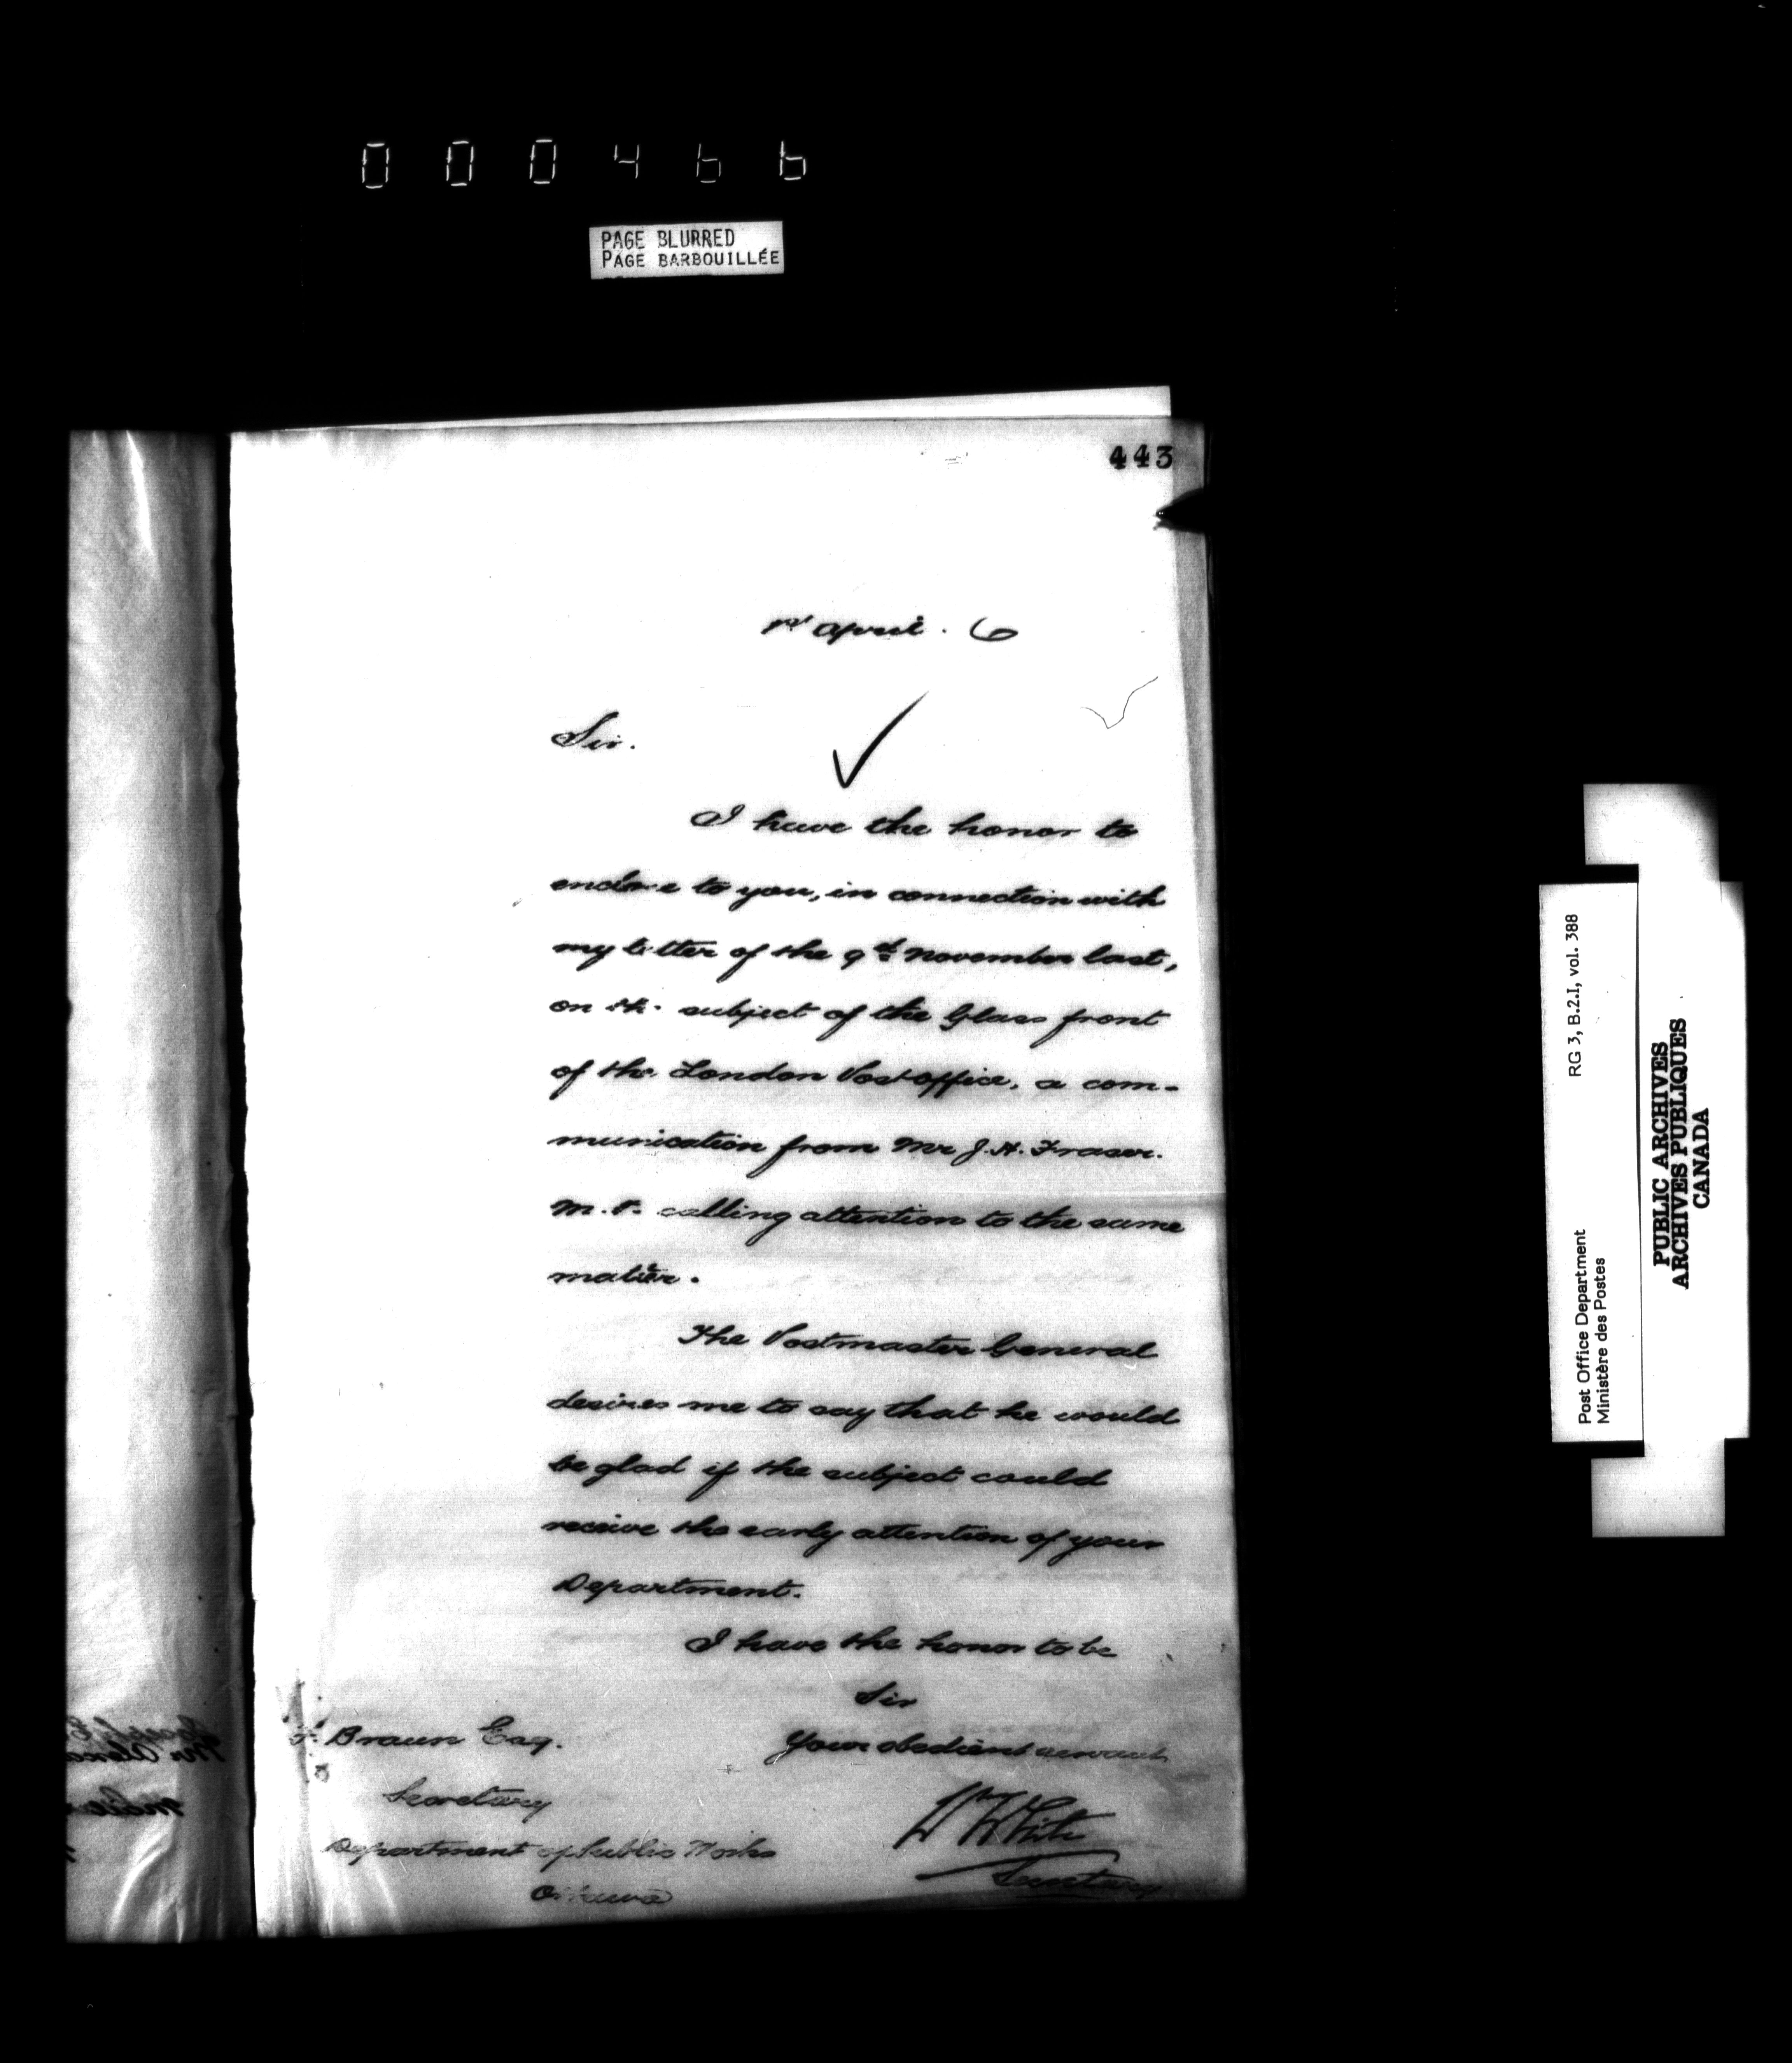 000466
PAGE BLURRED
PAGE BARBOUILLÉE
443
1st April. 6
Sir.
I have the honor to
enclose to you, in connection with
my letter of the 9th November last,
on the subject of the Glass front
of the London Post office, a com-
munication from Mr J. H. Fraser.
M.P. calling attention to the same
matter.
The Postmaster General
desires me to say that he would
be glad if the subject could
receive the early attention of your
Department.
I have the honor to be
Sir
Your obedient servant
F. Braun Esq.
Secretary
Department of Public Works
Ottawa
W White
Secretary
Post Office Department
Ministère des Postes
RG 3, B.2.I, vol. 388
PUBLIC ARCHIVES
ARCHIVES PUBLIQUES
CANADA